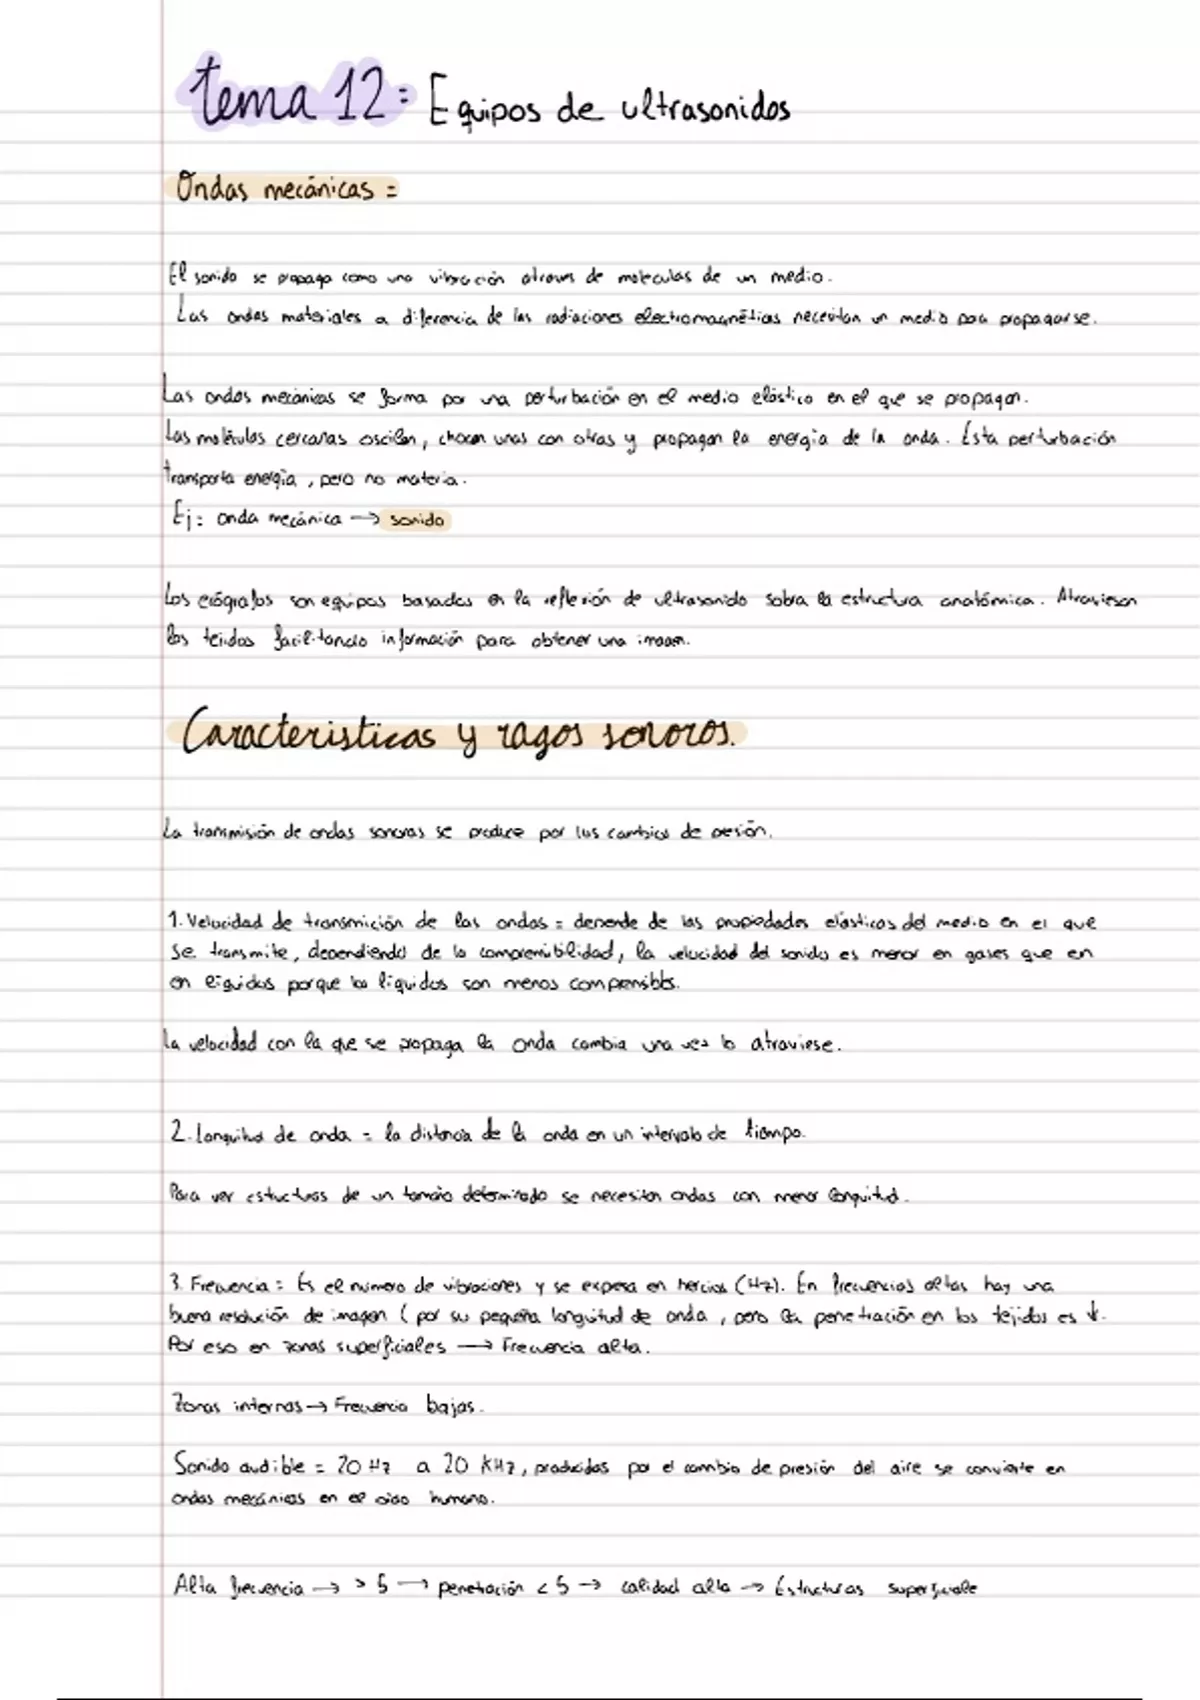 tema 12: Equipos de ultrasonidos
Ondas mecánicas =
El sonido se propaga como una vibración atraves de moleculas de un medio.
Las ondas materiales a diferencia de las radiaciones electromagnéticas necesitan un medio para propagarse.
Las ondas mecánicas se forma por una perturbación en el medio elástico en el que se propagan.
Las moléculas cercanas oscilan, chocan unas con otras y propagan la energia de la onda. Esta perturbación
transporta energía, pero no materia.
Ej: onda mecánica → sonido
Los ecógrafos son equipos basados en la reflexión de ultrasonido sobra la estructura anatómica. Atraviesan
los tejidos facilitando información para obtener una imagen.
Caracteristicas y ragos sonoros.
La transmisión de ondas sonoras se produce por los cambios de presión.
1. Velocidad de transmición de las ondas = depende de las propiedades elásticas del medio en el que
se transmite, dependiendo de la comprensibilidad, la velocidad del sonido es menor en gases que en
en liquidos porque los liquidos son menos compensibles.
La velocidad con la que se propaga la onda cambia una vez lo atraviese.
2. Longuitud de onda = la distancia de la onda en un intervalo de tiempo.
Para ver estucturas de un tamaño determinado se necesitan ondas con menor longuitud.
3. Frecuencia = Es el numero de vibraciones y se expesa en hercios (Hz). En frecuencias altas hay una
buena resolución de imagen ( por su pequeña longitud de onda, pero la penetración en los tejidos es ↓.
Por eso en zonas superficiales → Frecuencia alta.
Zonas internas → Frecuencia bajas.
Sonido audible = 20 Hz a 20 KHz, producidas por el cambio de presión del aire se convierte en
ondas mecánicas en el oido humano.
Alta frecuencia → > 5 → penetración < 5 → calidad alta → Estructuras superficiale